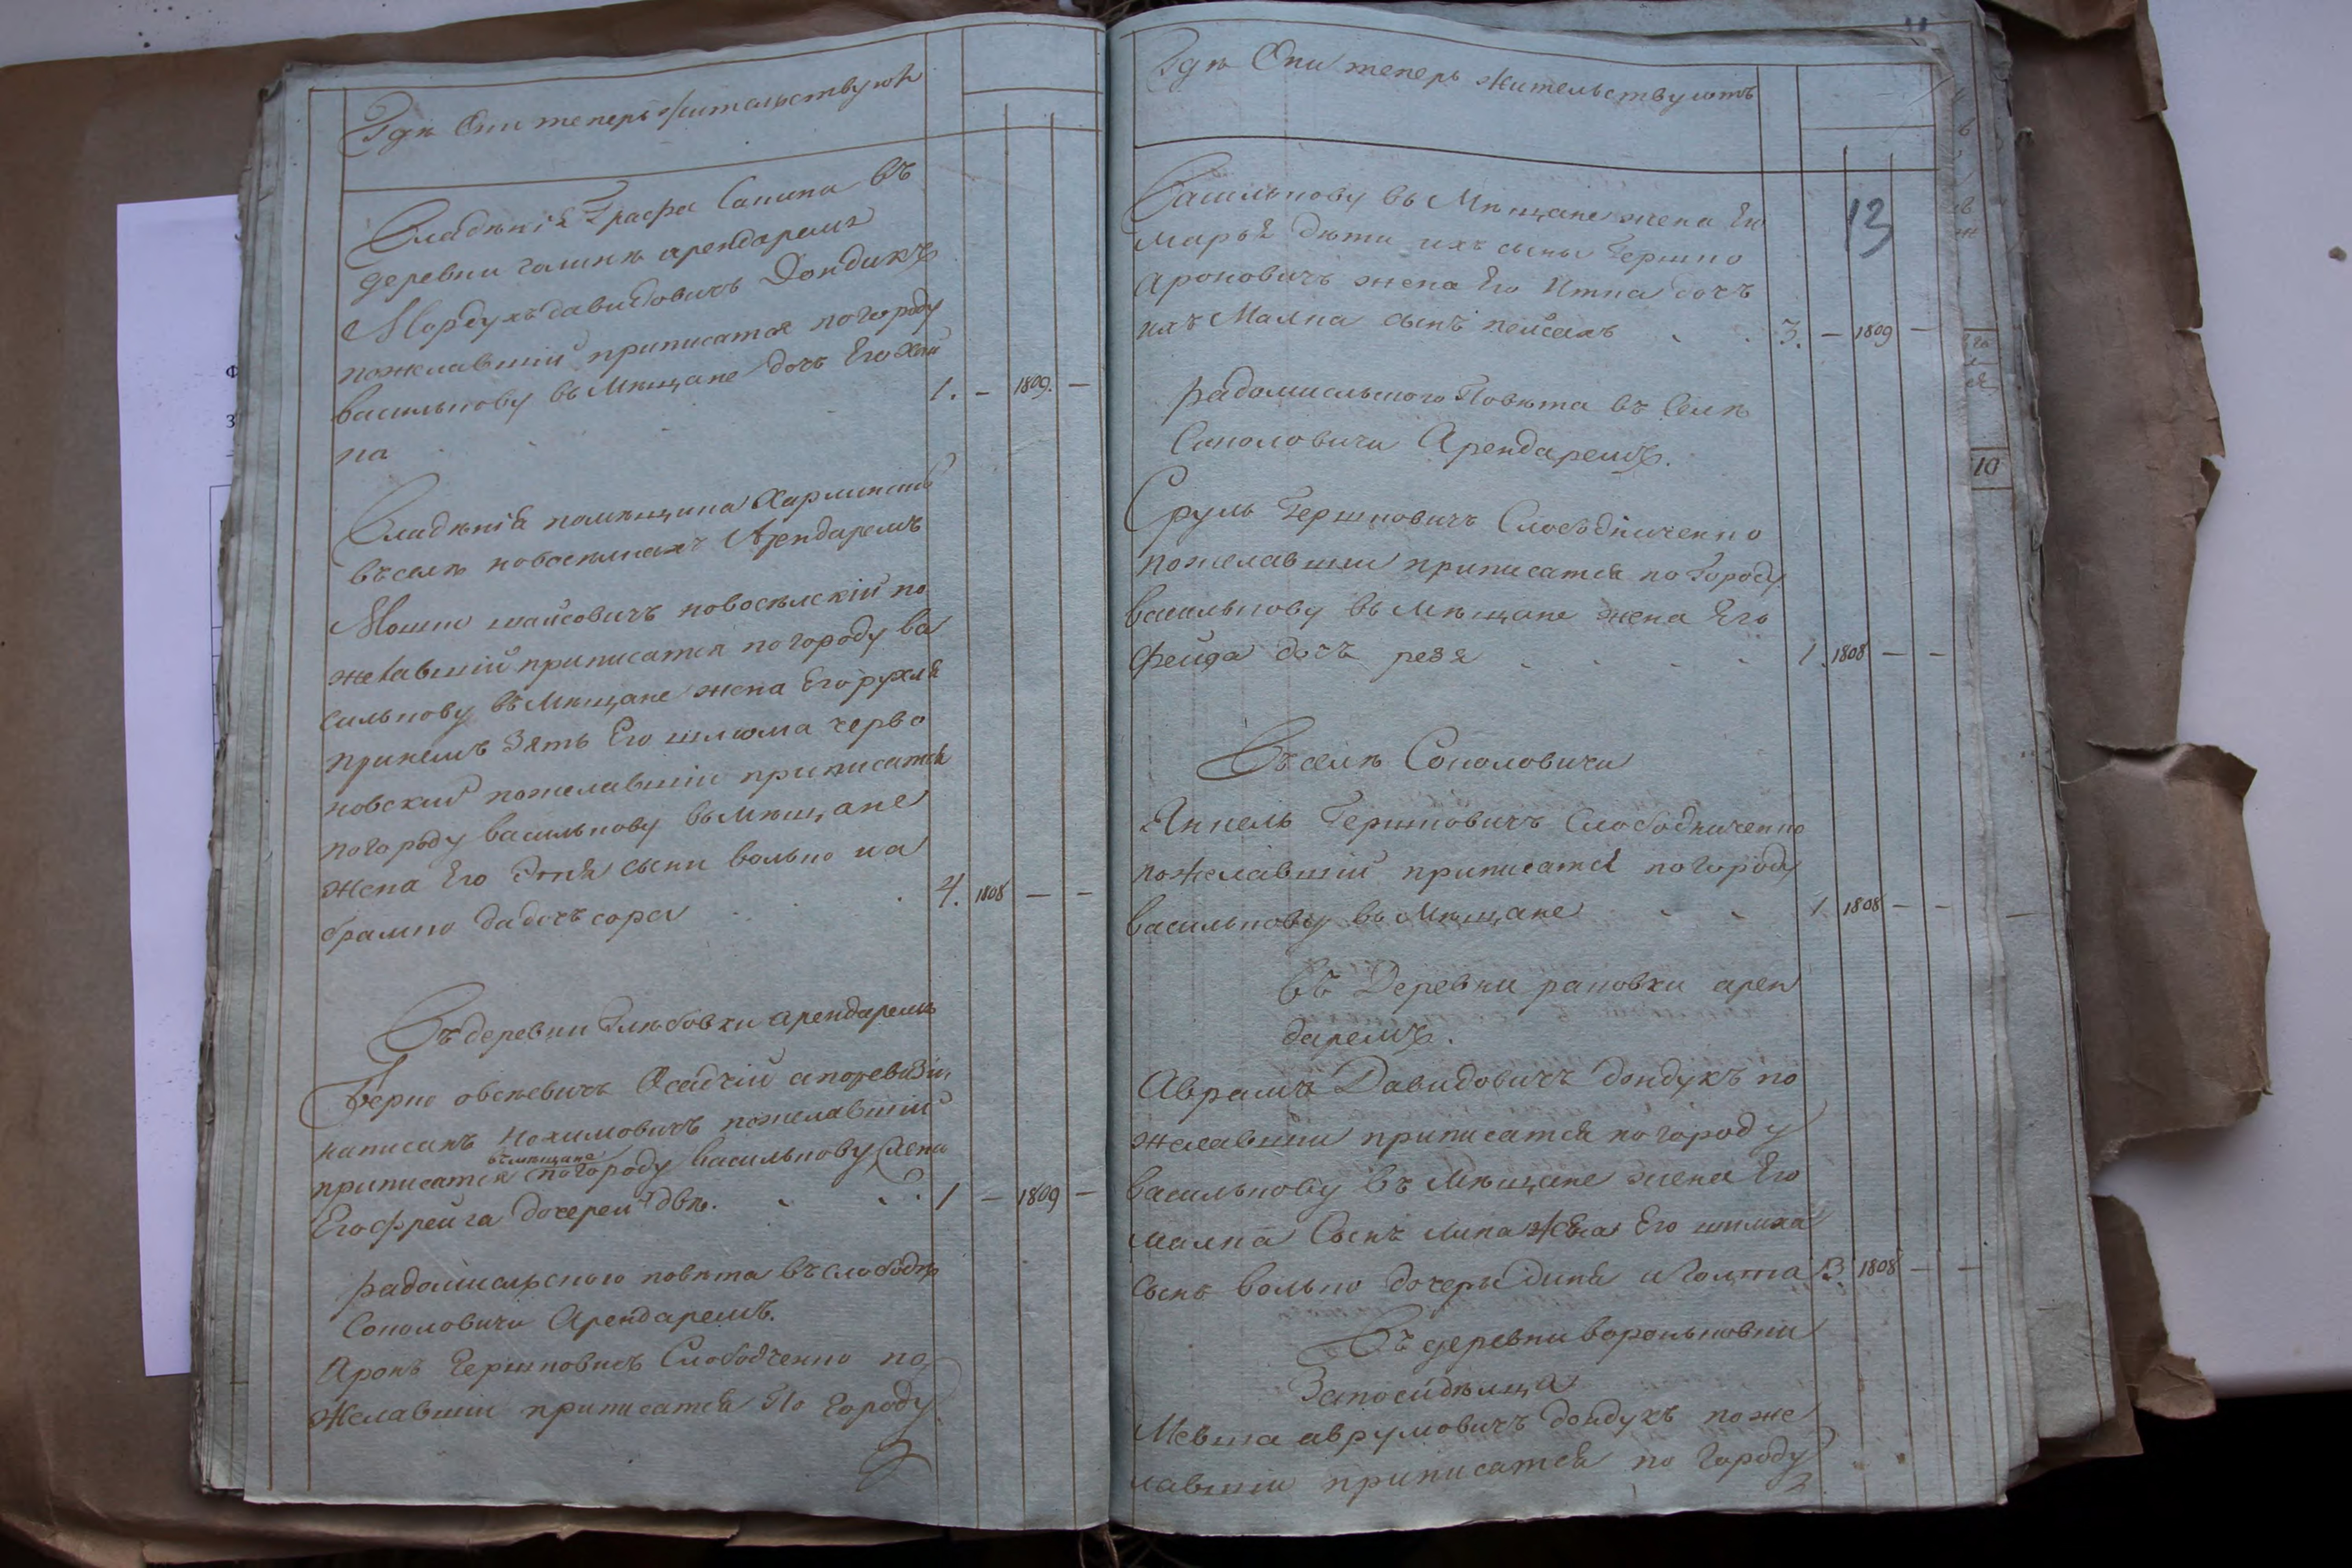 Гдѣ Они теперь Жительствуют
Владѣнія Графа Сапипа въ
деревни галинкѣ арендаремъ
Мордухъ давидовичъ Дондикъ
пожелавшій приписатся по городу
василькову въ Мѣщане дочь Его Хай
ка 1. — 1809. —
Владѣнія помѣщика Харлинского
въ селѣ новоселкахъ Арендаремъ
Мошко шайсовичъ новоселскій по
желавшій приписатся по городу ва
силькову въ Мѣщане жена Его рухля
принемъ Зять Его шлиома черво
новский пожелавшій приписатся
по городу василькову въ Мѣщане
жена Его Этя сыни волько иа
брамко да дочь сора 4. 1808 — —
Въ деревни Глюбовки арендаремъ
Берко овсѣевичъ Осадчій а поревизіи
написанъ нохимовичъ пожелавшій
въ мещане
приписатся по городу василькову жена
Его фрейга дочерей двѣ. 1 — 1809 —
радомисльского повѣта въ слободѣ
Соколовичи Арендаремъ.
Аронъ Гершковичъ Слободченко по
желавшій приписатся По городу
Гдѣ Они теперь Жительствуютъ
13
Василькову въ Мѣщане жена Его
марья дѣти ихъ сыны Гершко
ароновичъ жена Его Итка дочь
ихъ Малка сынъ пейсахъ 3. — 1809 —
радомисльского Повѣта въ Селѣ
Соколовичи Арендаремъ.
Сруль Гершковичъ Слободниченко
пожелавший приписатся по Городу
василькову въ Мѣщане жена Его
Фейга дочъ резя 1. 1808 — —
Въ селѣ Соколовичи
Янкель Гершковичъ Слободниченко
пожелавший приписатся по городу
василькову въ Мѣщане 1 1808 — —
въ Деревни раковки арен
даремъ.
Аврамъ Давидовичъ дондукъ по
желавший приписатся по городу
василькову въ Мѣщане жена Его
малка Сынъ липа жена Его шимха
сынъ волько дочеры диня и Голта 3. 1808 — —
Въ деревни вороньковки
Мевша аврумовичъ дондукъ поже
лавший приписатся по Городу
10